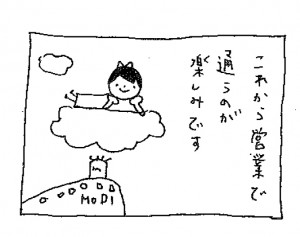 これから営業で
通うのが
楽しみです
MORI